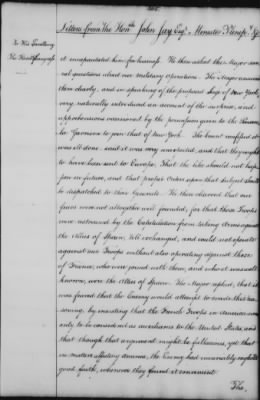 Letters from The Hon.ble John Jay Esq.r Minister Plenip.y &c
To His Excellency
The President of Congress
it incapacitated him for hearing. He then asked the Major several questions about our military operations. The Major answered
them clearly, and in speaking of the proposed siege of New York,
very naturally introduced an account of the surprise, and
apprehensions occasioned by the permission given to the Pensacola Garrison to join that of New York. The Count
it was all done, said it was very unexpected, and that they ought
to have been sent to Europe. That the like should not happen in future, and that proper Orders upon that subject should
be dispatched to their Generals. He then observed that our
fears were not altogether well founded, for that those Troops
were restrained by the Capitulation from taking Arms against
the Allies of Spain, till exchanged, and could not operate
against our Troops without also operating against those
of France, who were joined with them, and who it was well
known, were the Allies of Spain. The Major replied, that it
was feared that the Enemy would attempt to evade this reasoning, by insisting that the French Troops in America were
only to be considered as auxiliaries to the United States, and
that though that argument might be fallacious, yet that
in matters affecting America, the Enemy had invariably
good faith, whenever they found it convenient.
The